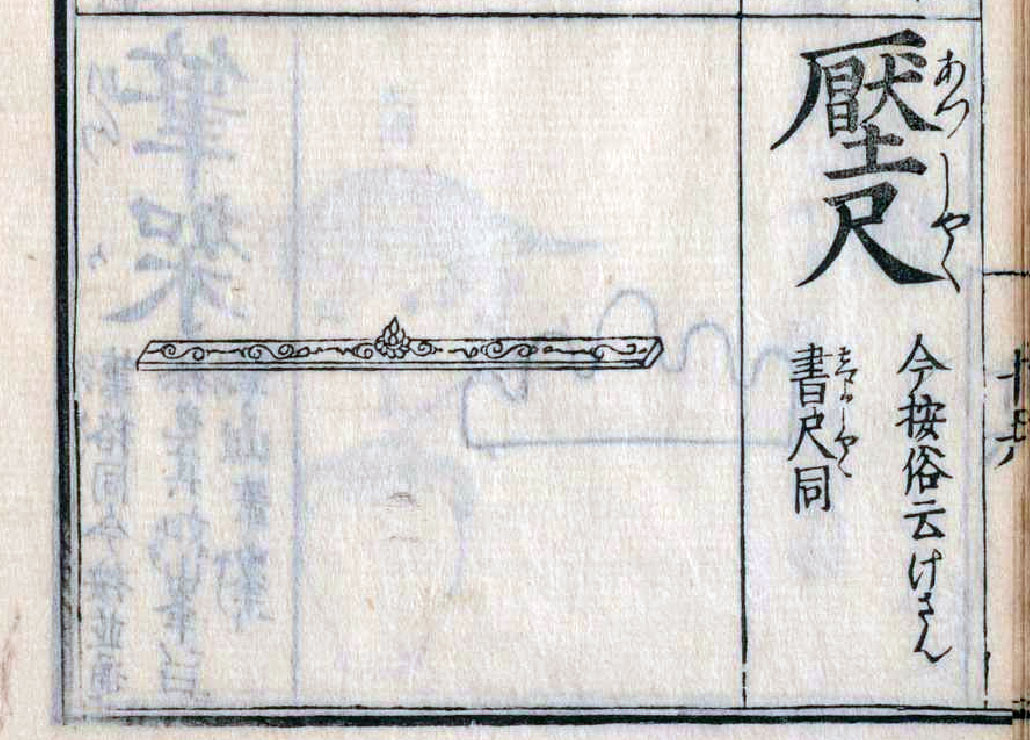 壓尺
あつしやく
今按俗云けさん
書尺同
しよしやく